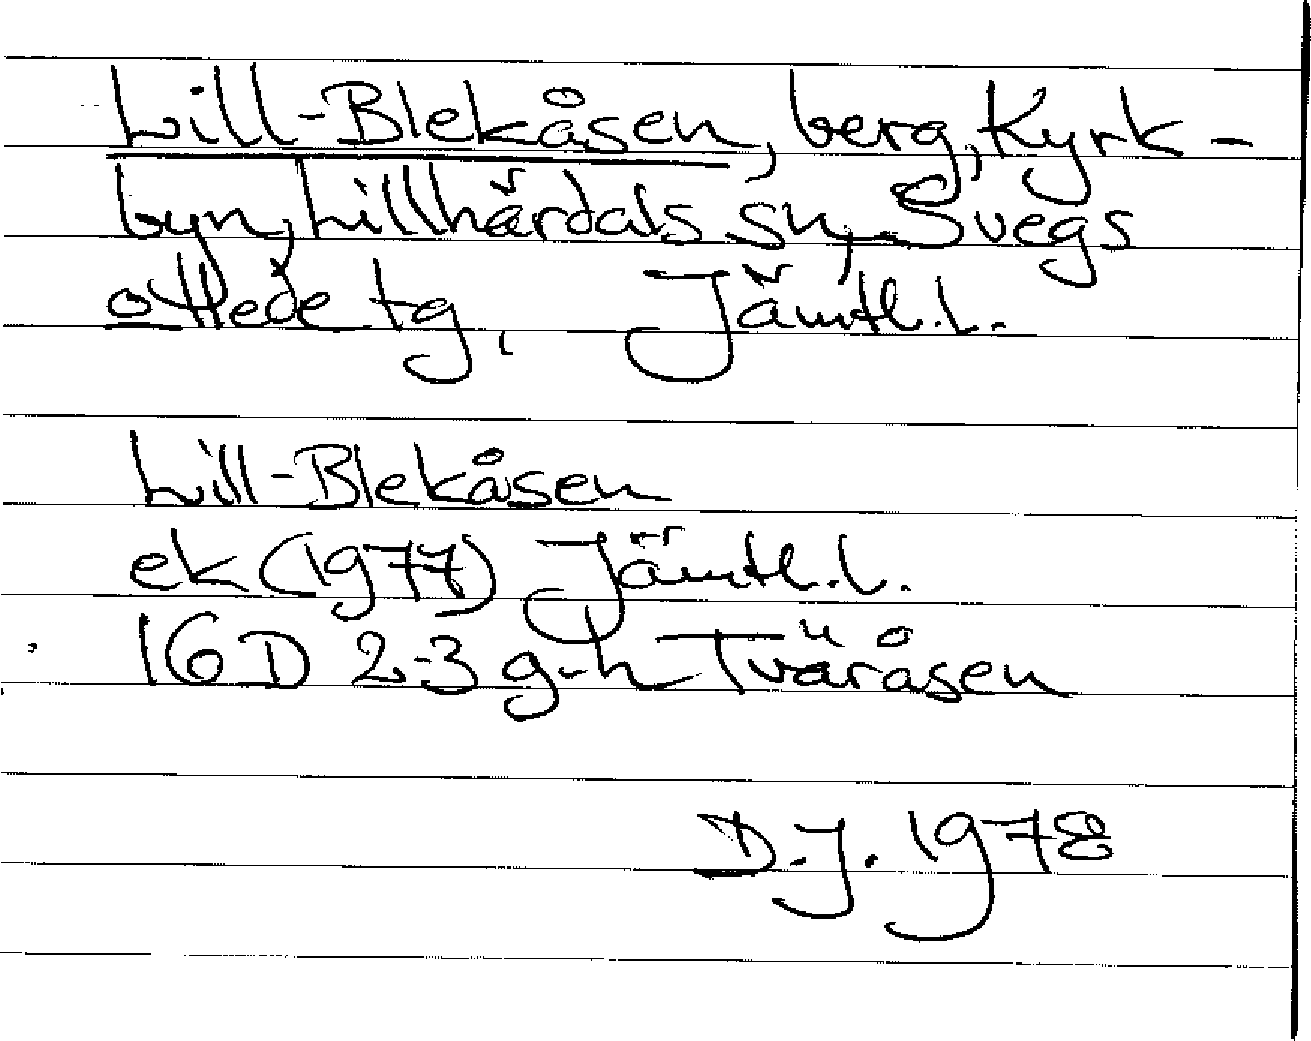 Lill-Blekåsen, berg, Kyrk-
byn, Lillhärdals sn, Svegs
o Hede tg, Jämtl.L.
Lill-Blekåsen
ek (1977) Jämtl.L.
16D 2-3 g-h Tväråsen
D.J. 1978